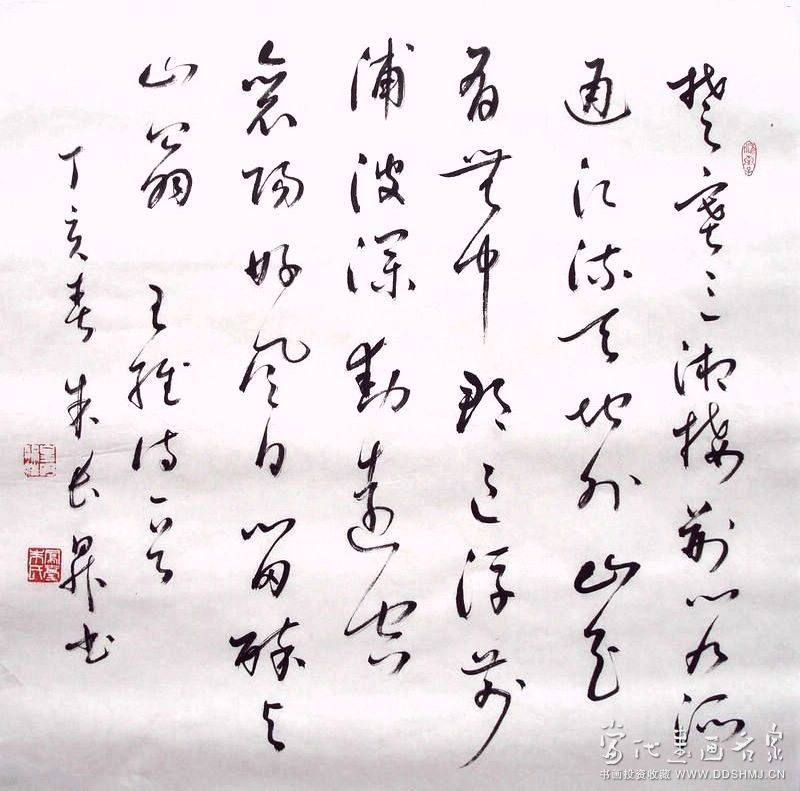 楚塞三湘接荆门九派
通江流天地外山色
有無中郡邑浮前
浦波澜動遠空
襄陽好風日留醉与
山翁 王維诗一首
丁亥春 朱长昇书
当代书画名家
书画投资收藏 WWW.DDSHMJ.CN